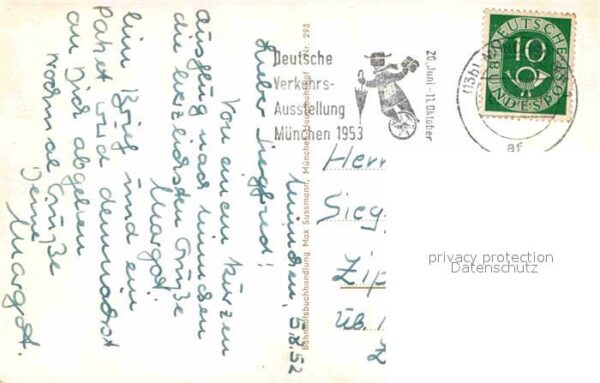 München, 5.8.52
Lieber Siegfried!
Von einem kurzen
Ausflug nach München
die herzlichsten Grüße
Margot!
Ein Brief und ein
Paket wird demnächst
an Dich abgehen
Nochmal Grüße
Deine
Margot.
Bahnhofsbuchhandlung Max Sussmann, München Hauptbahnhof Nr. 293
Deutsche
Verkehrs-
Ausstellung
München 1953
20. Juni - 11. Oktober
(13b) MÜNCHEN
af
DEUTSCHE
10
BUNDESPOST
Herr
Sieg
Zip
üb.
Z
privacy protection
Datenschutz